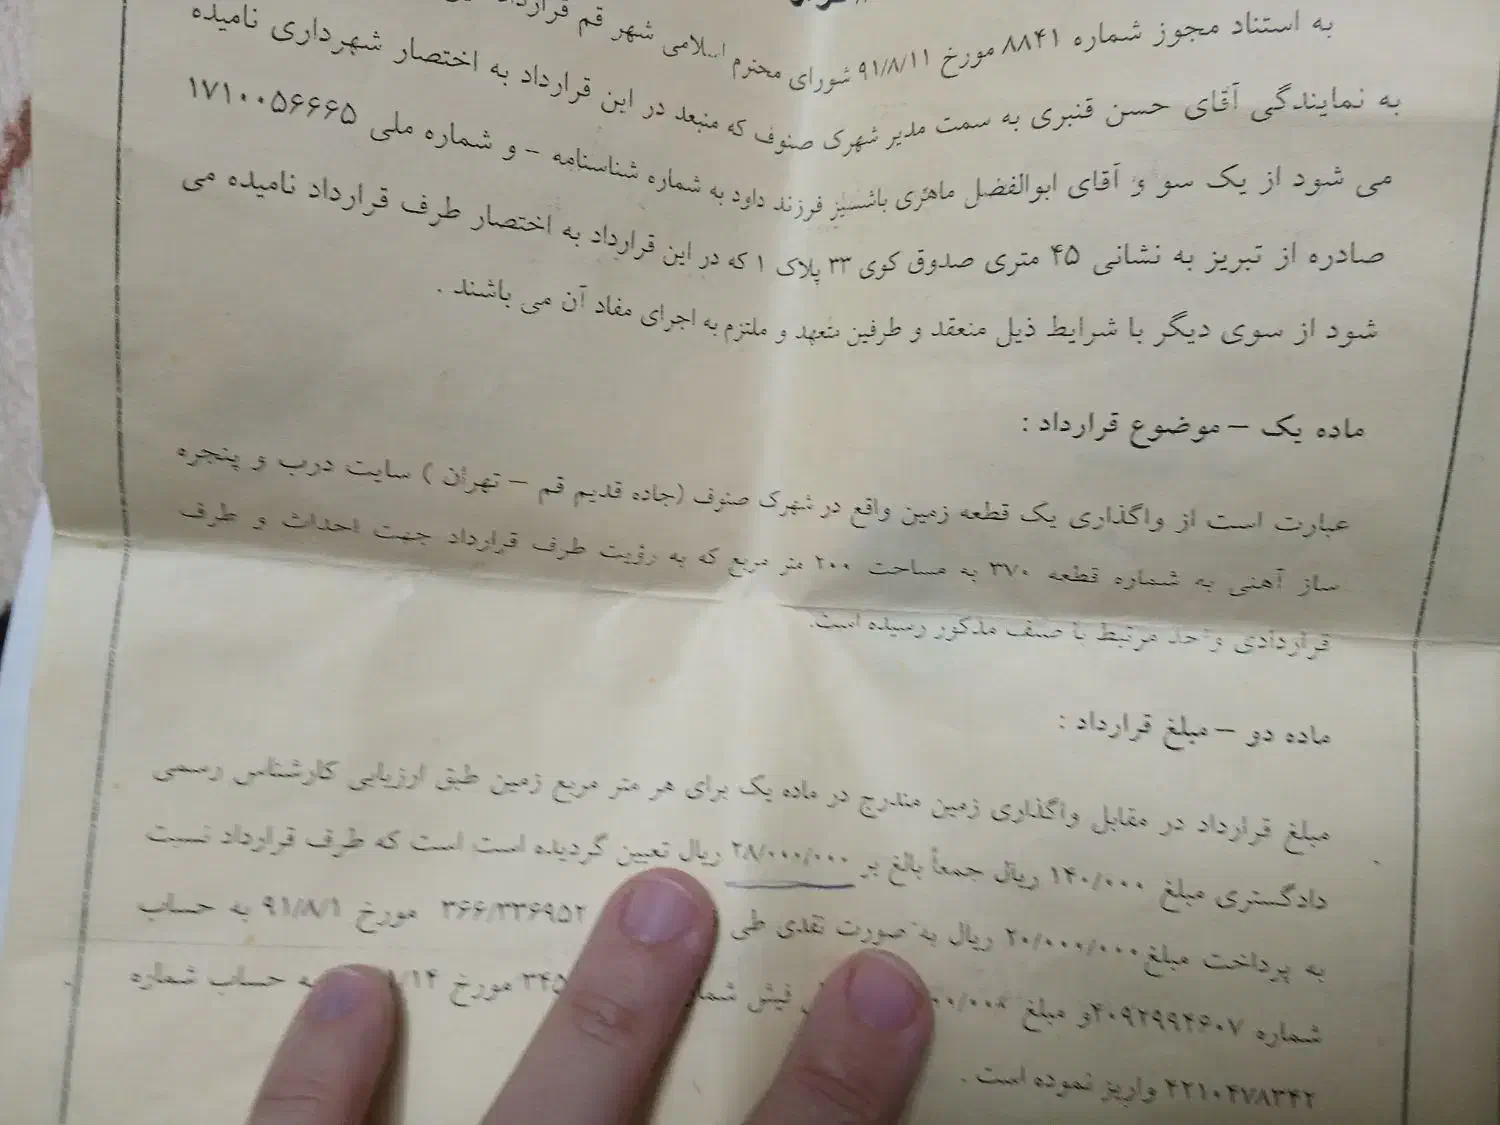 به استناد مجوز شماره ۸۸۴۱ مورخ ۹۱/۸/۱۱ شورای محترم اسلامی شهر قم
به نمایندگی آقای حسن قنبری به سمت مدیر شهرک صنوف که منبعد در این قرارداد به اختصار شهرداری نامیده
می شود از یک سو و آقای ابوالفضل ماهری باشسیز فرزند داود به شماره شناسنامه - و شماره ملی ۱۷۱۰۰۵۶۶۶۵
صادره از تبریز به نشانی ۴۵ متری صدوق کوی ۳۳ پلاک ۱ که در این قرارداد به اختصار طرف قرارداد نامیده می
شود از سوی دیگر با شرایط ذیل منعقد و طرفین متعهد و ملتزم به اجرای مفاد آن می باشند .
ماده یک – موضوع قرارداد :
عبارت است از واگذاری یک قطعه زمین واقع در شهرک صنوف (جاده قدیم قم – تهران ) سایت درب و پنجره
ساز آهنی به شماره قطعه ۳۷۰ به مساحت ۲۰۰ متر مربع که به رؤیت طرف قرارداد جهت احداث و طرف
قراردادی واحد مرتبط با صنف مذکور رسیده است.
ماده دو – مبلغ قرارداد :
مبلغ قرارداد در مقابل واگذاری زمین مندرج در ماده یک برای هر متر مربع زمین طبق ارزیابی کارشناس رسمی
دادگستری مبلغ ۱۴۰/۰۰۰ ریال جمعاً بالغ بر ۲۸/۰۰۰/۰۰۰ ریال تعیین گردیده است است که طرف قرارداد نسبت
به پرداخت مبلغ ۲۰/۰۰۰/۰۰۰ ریال به صورت نقدی طی ۳۶۶/۳۳۶۹۵۲ مورخ ۹۱/۸/۱ به حساب
شماره ۲۰۹۲۹۹۴۶۰۷ و مبلغ فیش مورخ به حساب شماره
۲۲۱۰۴۷۸۳۴۲ واریز نموده است .